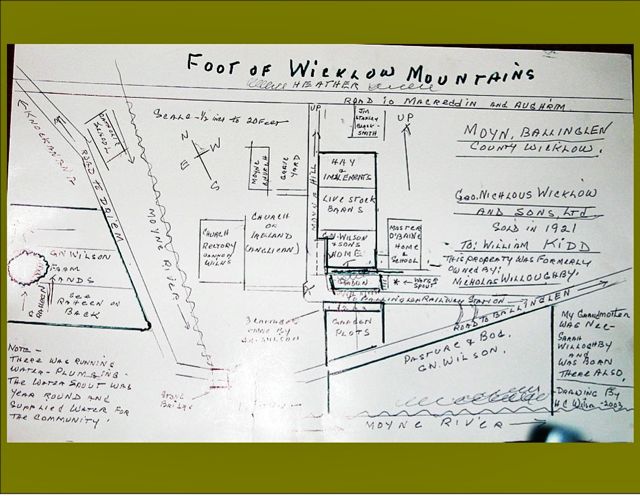 FOOT OF WICKLOW MOUNTAINS
HEATHER
ROAD TO MACREDDIN AND AUGHRIM
KNOCKANNA
SCHOOL
ROAD TO
SCALE - 1/2 inch TO 20 FEET
N
W
E
S
MOYNE RIVER
MOYNE CHURCH
GRAVE YARD
UP
MOYN HILL
JIM
BLACK-
SMITH
UP
HAY
&
IMPLEMENTS
LIVE STOCK
BARNS
G.N-WILSON
& SONS
HOME
MASTER
O'BRIEN
HOME
&
SCHOOL
CHURCH
RECTORY
CHURCH
OF
IRELAND
(ANGLICAN)
MOYN, BALLINGLEN
COUNTY WICKLOW.
GEO. NICHLOUS WICKLOW
AND SONS, Ltd
SOLD IN 1921
TO: WILLIAM KIDD
- THIS PROPERTY WAS FORMERLY
OWNED BY:
NICHOLAS WILLOUGHBY:
* ← WATER
SPOUT
GARDEN
TO BALLINGLEN RAILWAY STATION
ROAD TO BALLINGLEN
GARDEN
PLOTS
PASTURE & BOG
G.N. WILSON.
G.N. WILSON
FARM
LANDS
RAHEEN
SEE
RAHEEN ON
BACK
NOTE -
THERE WAS RUNNING
WATER - PLUMBING -
THE WATER SPOUT WAS
YEAR ROUND AND
SUPPLIED WATER FOR
THE COMMUNITY.
STONE
BRIDGE
MY GRANDMOTHER
WAS NEE-
SARAH
WILLOGHBY
AND
WAS BORN
THERE ALSO.
- DRAWING BY
H.C. Wilson - 2003
MOYNE RIVER